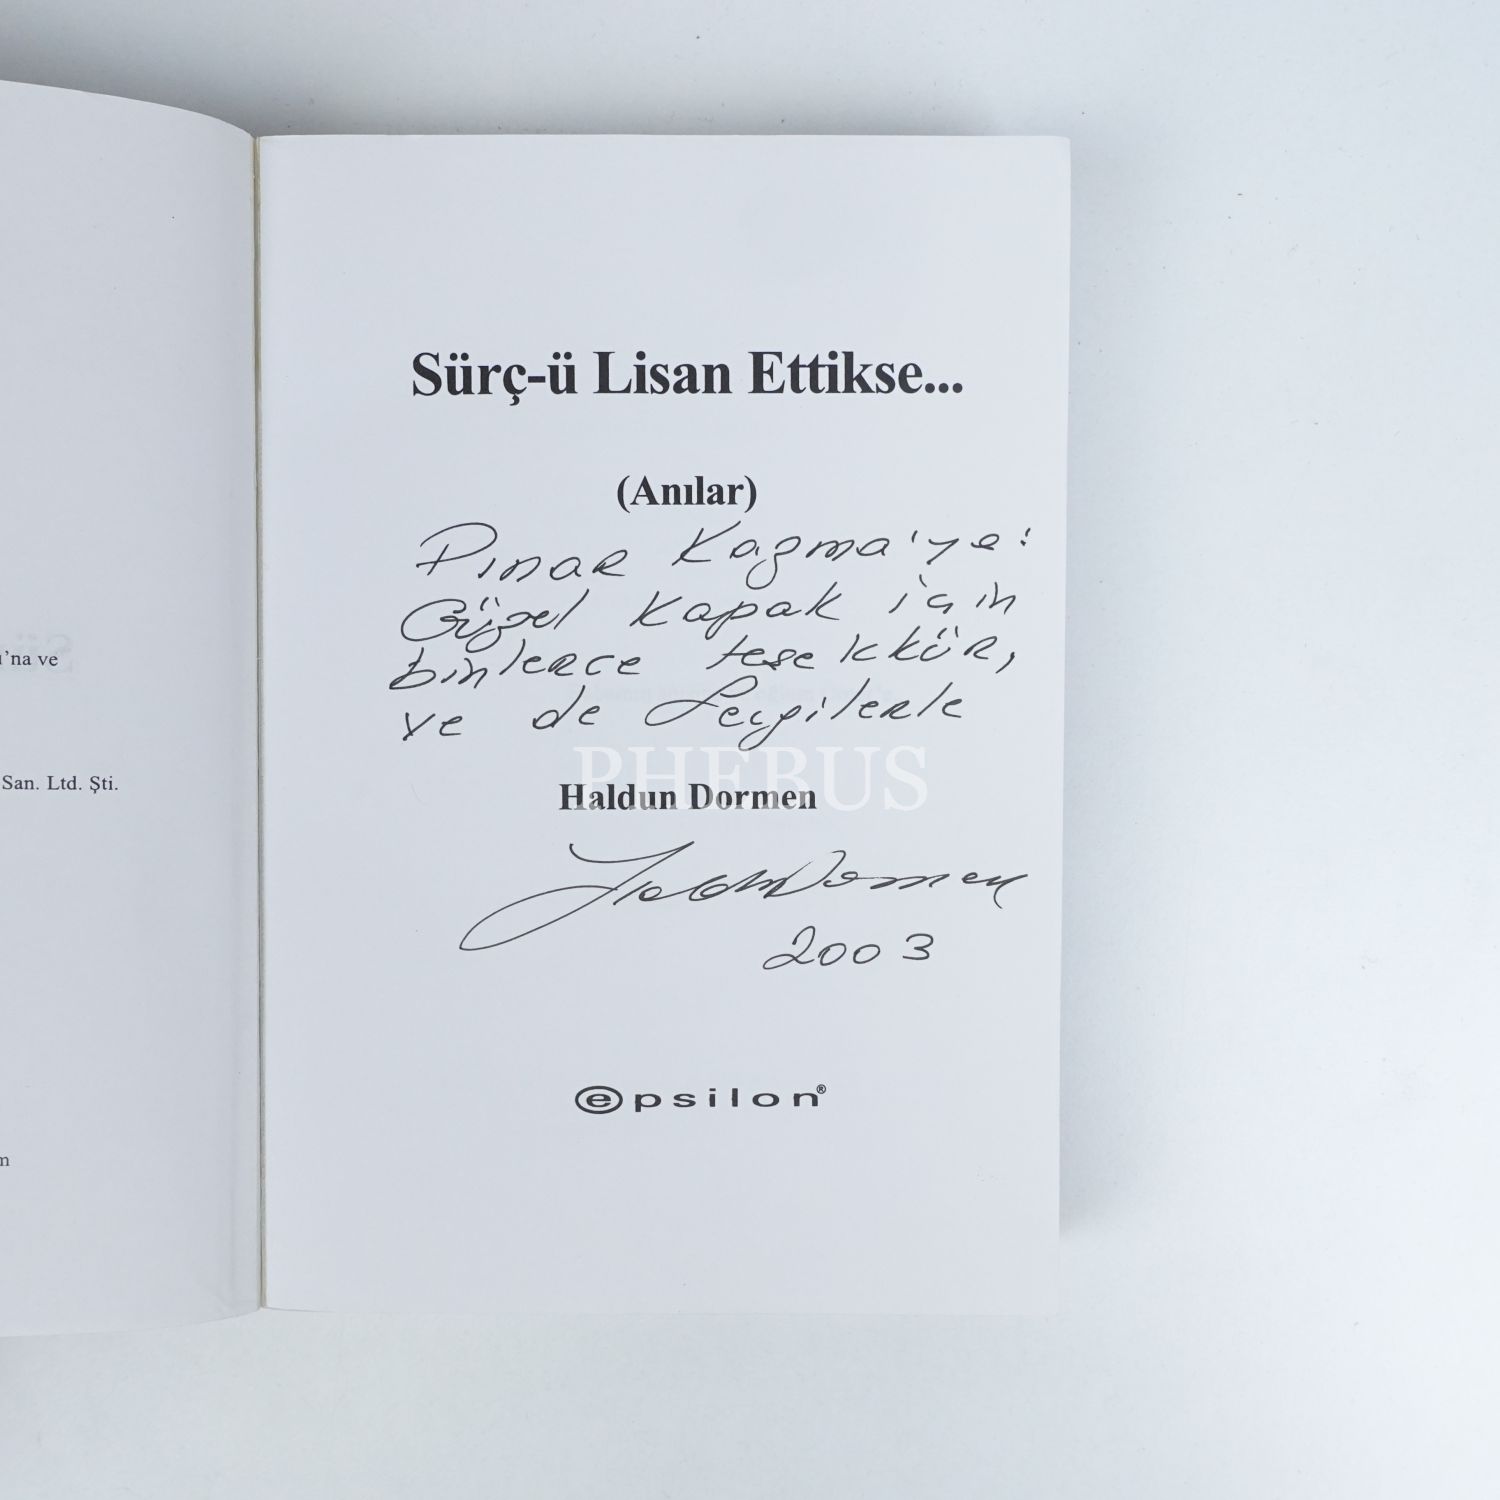 ı'na ve
San. Ltd. Şti.
m
Sürç-ü Lisan Ettikse...
(Anılar)
Pınar Kazma'ya:
Güzel Kapak için
binlerce teşekkür,
ve de Sevgilerle
PHEBUS
Haldun Dormen
Haldun Dormen
2003
epsilon®